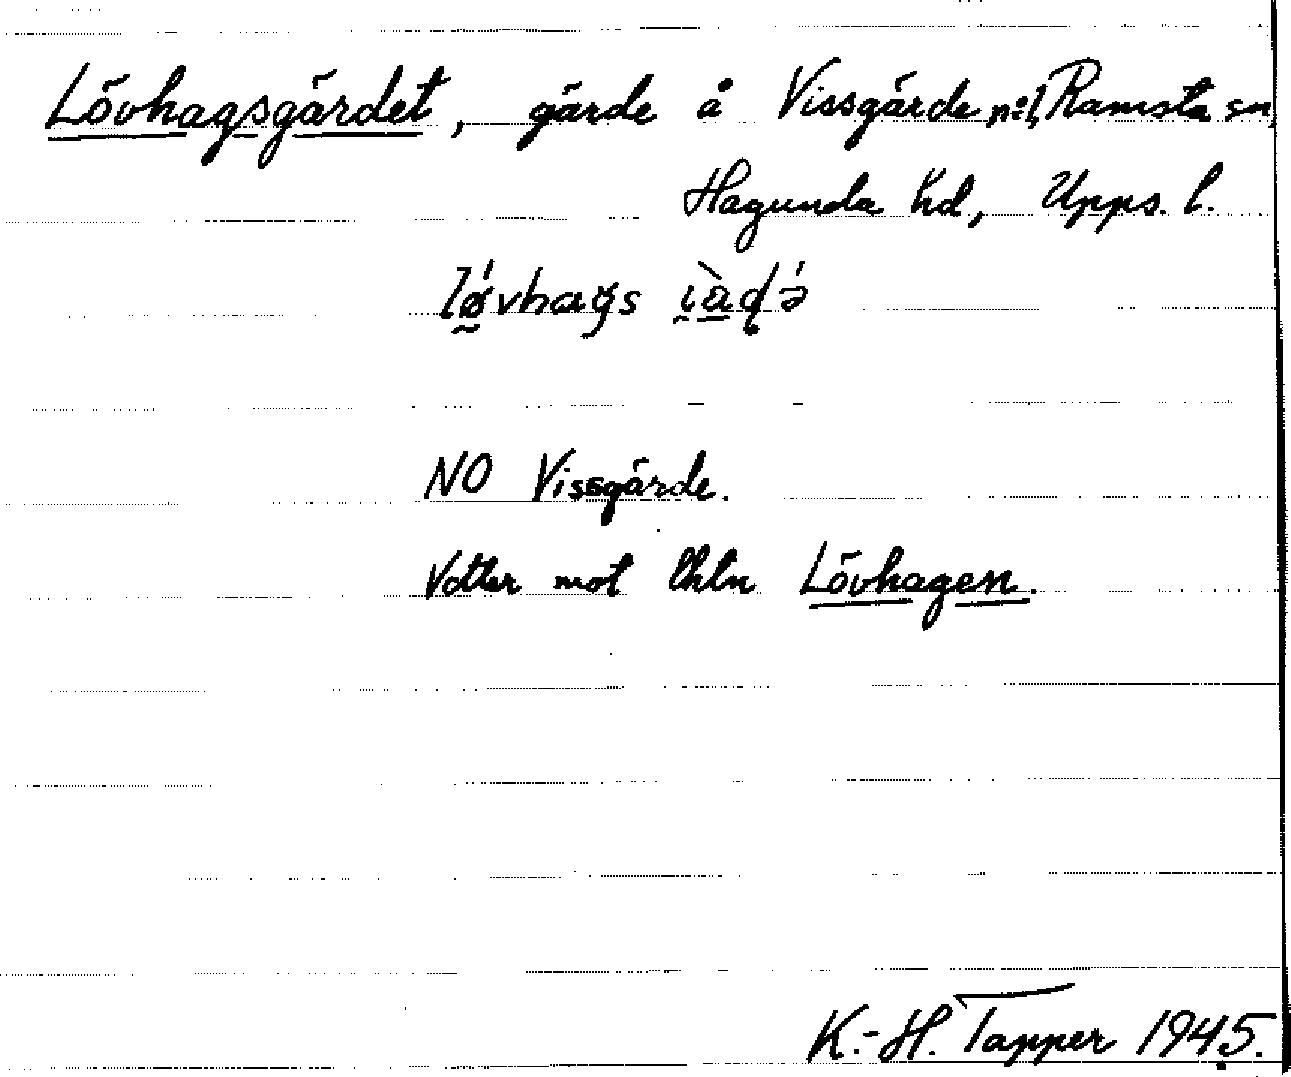 Lövhagsgärdet, gärde å Vissgärde n:1, Ramsta sn,
Hagunda hd, Upps. l.
NO Vissgärde.
Vetter mot lhtn Lövhagen.
K.-H. Tapper 1945.